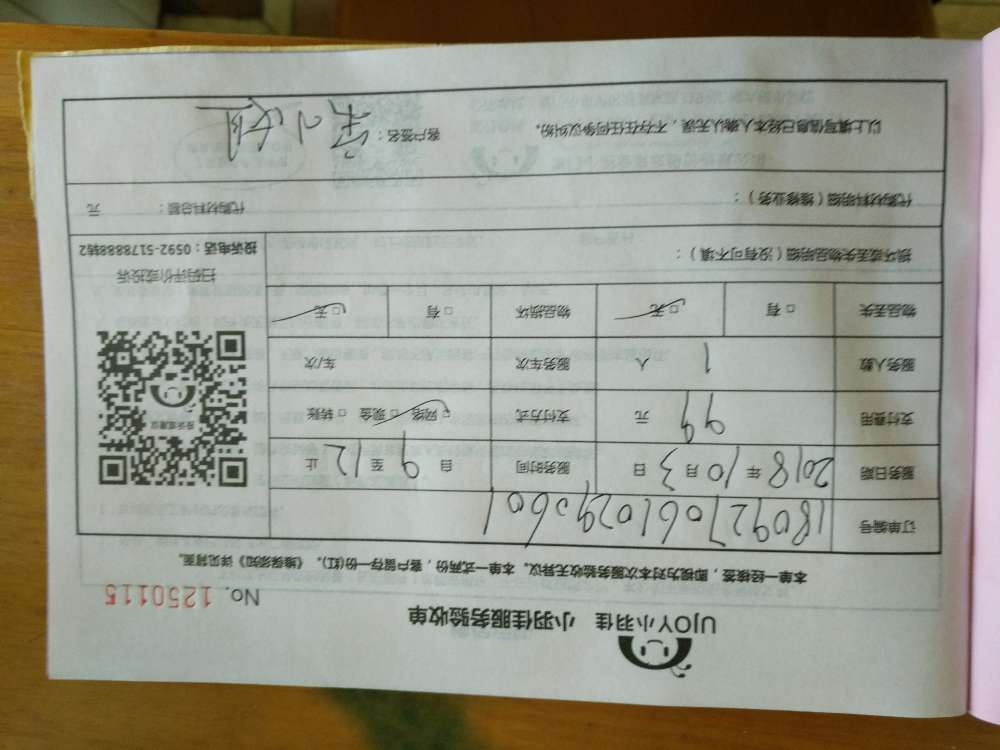 UJOY小羽佳 小羽佳服务验收单
No. 1250115
本单一经核签，即视为对本次服务验收无异议。本单一式两份，客户留存一份(红)。《维保须知》详见背面。
订单编号 1809270610290601
服务日期 2018 年 10 月 3 日 服务时间 自 9 至 12 止
支付费用 99 元 支付方式 □ 网络 □ 现金 □ 转账
服务人数 1 人 服务车次 车/次
物品丢失 □ 有 □ 无 物品损坏 □ 有 □ 无
投诉或建议
扫码评价或投诉
投诉电话：0592-5178888转2
损坏或丢失物品明细（没有可不填）：
代购材料明细（维修业务）： 代购材料总额： 元
以上填写信息已经本人确认无误，不存在任何争议纠纷。 客户签名：